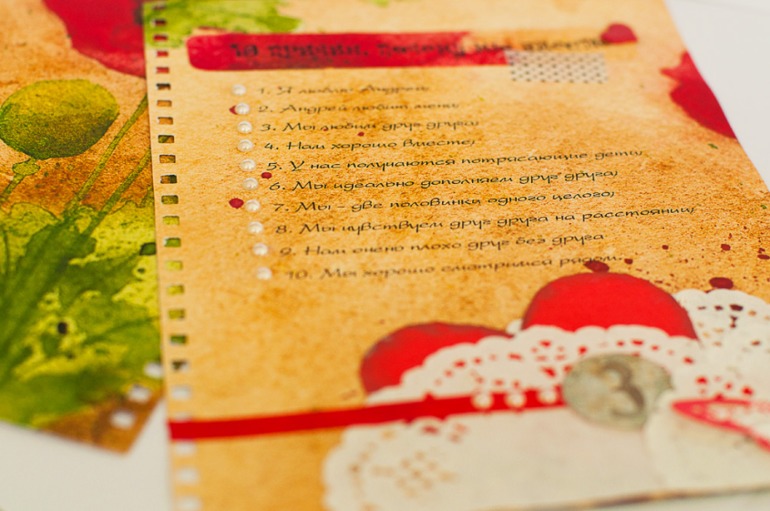 10 причин, почему мы вместе
1. Я люблю Андрея;
2. Андрей любит меня;
3. Мы любим друг друга;
4. Нам хорошо вместе;
5. У нас получаются потрясающие дети;
6. Мы идеально дополняем друг друга;
7. Мы - две половинки одного целого;
8. Мы чувствуем друг друга на расстоянии;
9. Нам очень плохо друг без друга
10. Мы хорошо смотримся рядом.
3